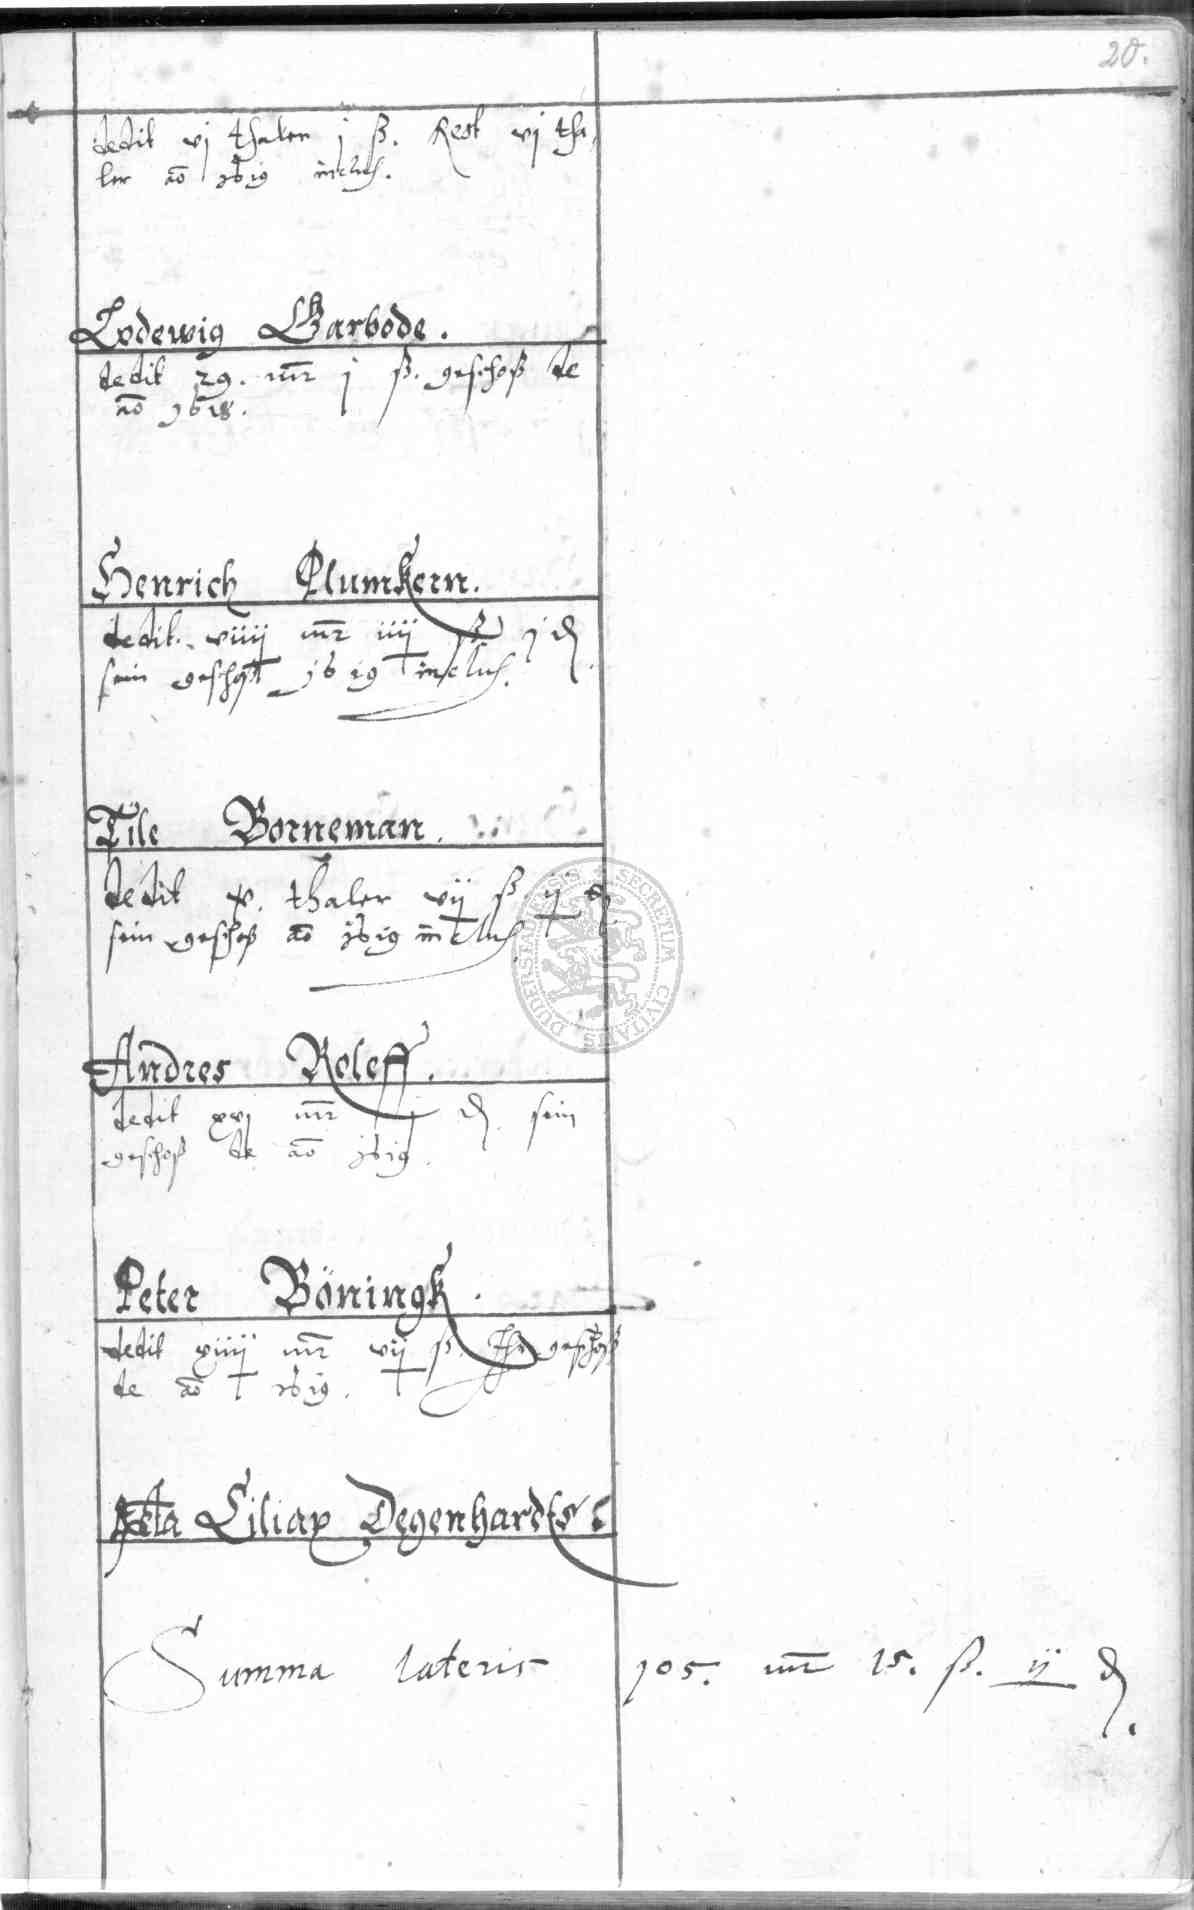 20.
dedit vj thaler j ß. Rest vj tha,
ler ao 1619 inclus.
Lodewig Garbode.
dedit 29. mr j ß. geschoß de
ao 1618.
Henrich Plumkern.
dedit viiij mr iiij ß j d
sein geschoß 1619 inclus.
Tile Borneman.
dedit x. thaler vij ß ij d
sein geschoß ao 1619 inclus.
Andres Roleff.
dedit xvj mr j d sein
geschoß de ao 1619.
Peter Böningk.
dedit xiiij mr vij ß. geschoß
de ao 1619.
Ciliax Degenhardts
Summa lateris 105. mr 15. ß. ij d.
SECRETUM CIVITATIS DUDERSTADENSIS